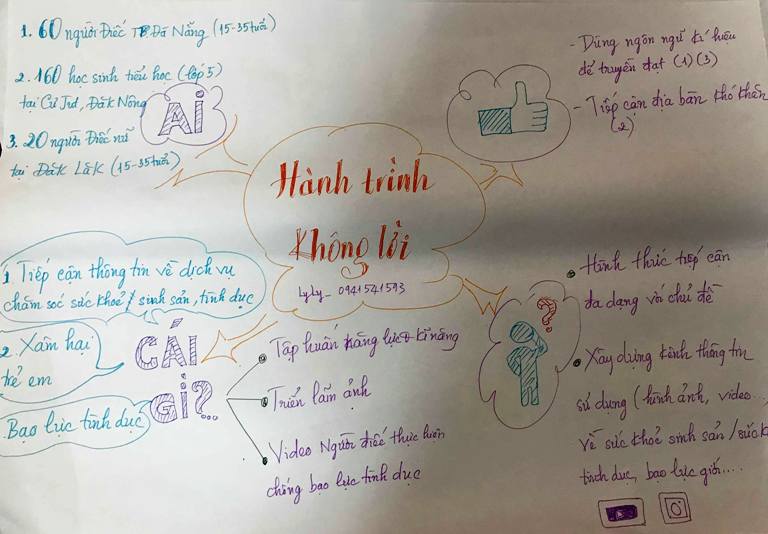 1. 60 người Điếc TP Đà Nẵng (15-35 tuổi)
2. 160 học sinh tiểu học (lớp 5)
tại Cư Jut, Đăk Nông
3. 20 người Điếc nữ
tại Đăk Lăk (15-35 tuổi)
AI
- Dùng ngôn ngữ kí hiệu
để truyền đạt (1) (3)
- Tiếp cận địa bàn khó khăn
(2)
Hành trình
không lời
LyLy_ 0941541593
1. Tiếp cận thông tin về dịch vụ
chăm sóc sức khoẻ / sinh sản, tình dục
2. Xâm hại
trẻ em
Bạo lực tình dục
CÁI
GÌ?...
Tập huấn năng lực + kĩ năng
Triển lãm ảnh
Video Người điếc thực hiện
chống bạo lực tình dục
?
Hình thức tiếp cận
đa dạng với chủ đề
Xây dựng kênh thông tin
sử dụng (hình ảnh, video...
về sức khoẻ sinh sản / sức k
tình dục, bạo lực giới....